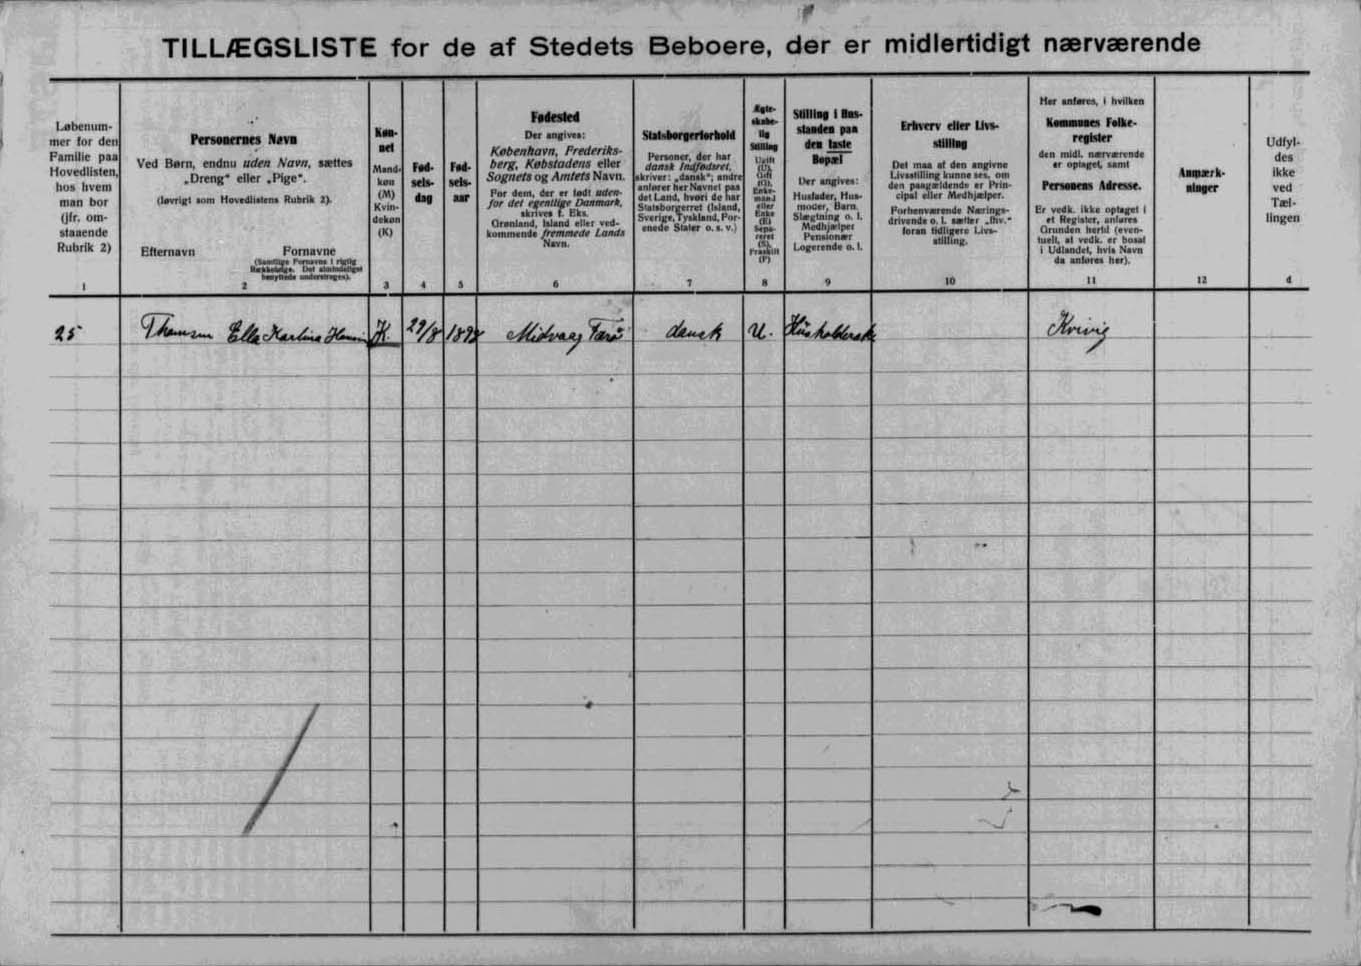 TILLÆGSLISTE for de af Stedets Beboere, der er midlertidigt nærværende
Løbenum-
mer for den
Familie paa
Hovedlisten,
hos hvem
man bor
(jfr. om-
staaende
Rubrik 2)
1
Personernes Navn
Ved Børn, endnu uden Navn, sættes
„Dreng“ eller „Pige“.
(Iøvrigt som Hovedlistens Rubrik 2).
Efternavn Fornavne
(Samtlige Fornavne i rigtig
Rækkefølge. Det almindeligst
benyttede understreges).
2
Køn-
net
Mand-
køn
(M)
Kvin-
dekøn
(K)
3
Fød-
sels-
dag
4
Fød-
sels-
aar
5
Fødested
Der angives:
København, Frederiks-
berg, Købstadens eller
Sognets og Amtets Navn.
For dem, der er født uden-
for det egentlige Danmark,
skrives f. Eks.
Grønland, Island eller ved-
kommende fremmede Lands
Navn.
6
Statsborgerforhold
Personer, der har
dansk Indfødsret,
skriver: „dansk“; andre
anfører her Navnet paa
det Land, hvori de har
Statsborgerret (Island,
Sverige, Tyskland, For-
enede Stater o. s. v.)
7
Ægte-
skabe-
lig
Stilling
Ugift
(U),
Gift
(G),
Enke-
mand
eller
Enke
(E)
Sepa-
reret
(S),
Fraskilt
(F)
8
Stilling i Hus-
standen paa
den faste
Bopæl
Der angives:
Husfader, Hus-
moder, Barn,
Slægtning o. l.
Medhjælper
Pensionær
Logerende o. l.
9
Erhverv eller Livs-
stilling
Det maa af den angivne
Livsstilling kunne ses, om
den paagældende er Prin-
cipal eller Medhjælper.
Forhenværende Nærings-
drivende o. l. sætter „fhv.“
foran tidligere Livs-
stilling.
10
Her anføres, i hvilken
Kommunes Folke-
register
den midl. nærværende
er optaget, samt
Personens Adresse.
Er vedk. ikke optaget i
et Register, anføres
Grunden hertil (even-
tuelt, at vedk. er bosat
i Udlandet, hvis Navn
da anføres her).
11
Anmærk-
ninger
12
Udfyl-
des
ikke
ved
Tæl-
lingen
d
25 Thomsen Ella Karlina K. 29/8 1898 Midvaag Færø dansk U. Husholderske Kvivig